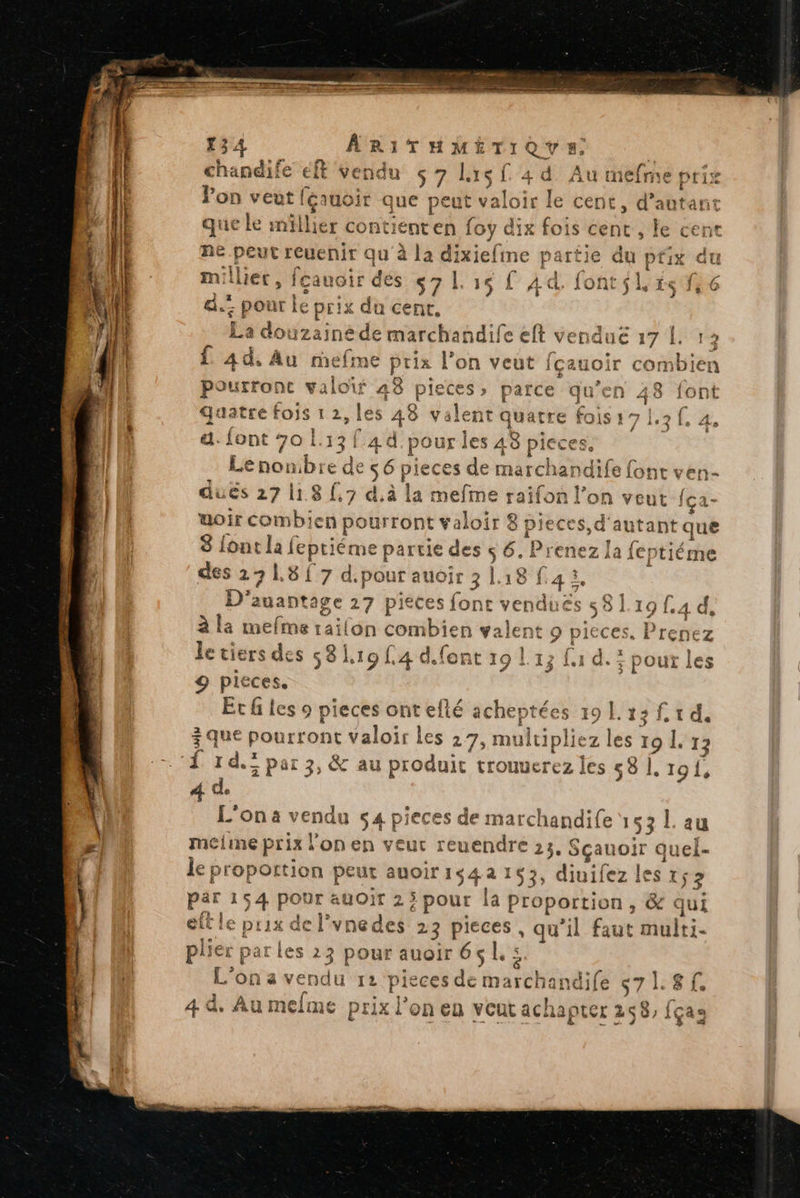 134 ARITHMETIQVE.
chandiſe eſt vendu 57 l. 15 ſ. 4 d. Au meſme prix
l'on veut ſçauoir que peut valoir le cent, d'autant
que le millier contient en ſoy dix fois cent, le cent
ne peut reuenir qu'à la dixieſme partie du prix du
millier, ſçauoir des 57 l. 15 ſ 4 d. ſont 5 l. 15 ſ. 6
d. pour le prix du cent.
La douzaine de marchandiſe eſt venduë 17 l. 13
ſ. 4 d. Au meſme prix l'on veut ſçauoir combien
pourront valoir 48 pieces, parce qu'en 48 ſont
quatre fois 12, les 48 valent quatre fois 17 l. 3 ſ. 4.
d. ſont 70 l. 13 ſ 4 d. pour les 48 pieces.
Le nombre de 56 pieces de marchandiſe ſont ven-
duës 27 l. 8 ſ. 7 d. à la meſme raiſon l'on veut ſça-
uoir combien pourront valoir 8 pieces, d'autant que
8 ſont la ſeptiéme partie des 56. Prenez la ſeptiéme
des 27 l. 8 ſ 7 d. pour auoir 3 l. 18 ſ. 4
D'auantage 27 pieces ſont venduës 58 l. 19 ſ. 4 d.
à la meſme raiſon combien valent 9 pieces. Prenez
le tiers des 58 l. 19 ſ. 4 d. ſont 19 l. 13 ſ. 1 d. pour les
9 pieces.
Et ſi les 9 pieces ont eſté acheptées 19 l. 13 ſ. 1 d.
que pourront valoir les 27, multipliez les 19 l. 13
ſ 1 d. par 3, & au produit trouuerez les 58 l. 19 ſ.
4 d.
L'on a vendu 54 pieces de marchandiſe 153 l. au
meſme prix l'on en veut reuendre 23. Sçauoir quel-
le proportion peut auoir 154 a 153, diuiſez les 153
par 154 pour auoir 2 pour la proportion, & qui
eſt le prix de l'vne des 23 pieces, qu'il faut multi-
plier par les 23 pour auoir 65 l.
L'on a vendu 12 pieces de marchandiſe 57 l. 8 ſ.
4 d. Au meſme prix l'on en veut achapter 258, ſça